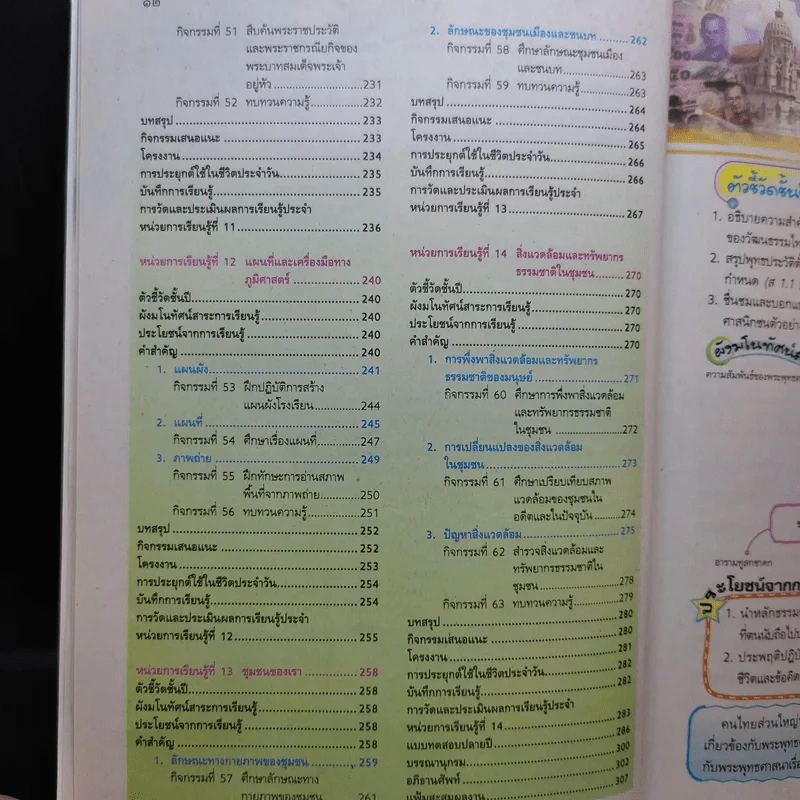 ๑๒
กิจกรรมที่ 51 สืบค้นพระราชประวัติ
และพระราชกรณียกิจของ
พระบาทสมเด็จพระเจ้า
อยู่หัว ............................231
กิจกรรมที่ 52 ทบทวนความรู้....................232
บทสรุป ..................................................233
กิจกรรมเสนอแนะ .....................................233
โครงงาน .................................................234
การประยุกต์ใช้ในชีวิตประจำวัน.......................235
บันทึกการเรียนรู้........................................235
การวัดและประเมินผลการเรียนรู้ประจำ
หน่วยการเรียนรู้ที่ 11.................................236
หน่วยการเรียนรู้ที่ 12 แผนที่และเครื่องมือทาง
ภูมิศาสตร์ .......................240
ตัวชี้วัดชั้นปี..............................................240
ผังมโนทัศน์สาระการเรียนรู้............................240
ประโยชน์จากการเรียนรู้................................240
คำสำคัญ .................................................240
1. แผนผัง...............................................241
กิจกรรมที่ 53 ฝึกปฏิบัติการสร้าง
แผนผังโรงเรียน.............244
2. แผนที่ ...............................................245
กิจกรรมที่ 54 ศึกษาเรื่องแผนที่.............247
3. ภาพถ่าย .............................................249
กิจกรรมที่ 55 ฝึกทักษะการอ่านสภาพ
พื้นที่จากภาพถ่าย...........250
กิจกรรมที่ 56 ทบทวนความรู้.................251
บทสรุป ..................................................252
กิจกรรมเสนอแนะ .....................................252
โครงงาน .................................................253
การประยุกต์ใช้ในชีวิตประจำวัน.......................254
บันทึกการเรียนรู้........................................254
การวัดและประเมินผลการเรียนรู้ประจำ
หน่วยการเรียนรู้ที่ 12.................................255
หน่วยการเรียนรู้ที่ 13 ชุมชนของเรา ..............258
ตัวชี้วัดชั้นปี..............................................258
ผังมโนทัศน์สาระการเรียนรู้............................258
ประโยชน์จากการเรียนรู้................................258
คำสำคัญ .................................................258
1. ลักษณะทางกายภาพของชุมชน ...............259
กิจกรรมที่ 57 ศึกษาลักษณะทาง
กายภาพของชุมชน ..........261
2. ลักษณะของชุมชนเมืองและชนบท ........262
กิจกรรมที่ 58 ศึกษาลักษณะชุมชนเมือง
และชนบท.....................263
กิจกรรมที่ 59 ทบทวนความรู้.................263
บทสรุป ..................................................264
กิจกรรมเสนอแนะ .....................................264
โครงงาน .................................................265
การประยุกต์ใช้ในชีวิตประจำวัน.......................266
บันทึกการเรียนรู้........................................266
การวัดและประเมินผลการเรียนรู้ประจำ
หน่วยการเรียนรู้ที่ 13.................................267
หน่วยการเรียนรู้ที่ 14 สิ่งแวดล้อมและทรัพยากร
ธรรมชาติในชุมชน.........270
ตัวชี้วัดชั้นปี..............................................270
ผังมโนทัศน์สาระการเรียนรู้............................270
ประโยชน์จากการเรียนรู้................................270
คำสำคัญ .................................................270
1. การพึ่งพาสิ่งแวดล้อมและทรัพยากร
ธรรมชาติของมนุษย์ ...........................271
กิจกรรมที่ 60 ศึกษาการพึ่งพาสิ่งแวดล้อม
และทรัพยากรธรรมชาติ
ในชุมชน ......................272
2. การเปลี่ยนแปลงของสิ่งแวดล้อม
ในชุมชน ..........................................273
กิจกรรมที่ 61 ศึกษาเปรียบเทียบสภาพ
แวดล้อมของชุมชนใน
อดีตและในปัจจุบัน ........274
3. ปัญหาสิ่งแวดล้อม...............................275
กิจกรรมที่ 62 สำรวจสิ่งแวดล้อมและ
ทรัพยากรธรรมชาติใน
ชุมชน ..........................278
กิจกรรมที่ 63 ทบทวนความรู้.................279
บทสรุป ..................................................280
กิจกรรมเสนอแนะ .....................................280
โครงงาน .................................................281
การประยุกต์ใช้ในชีวิตประจำวัน.......................282
บันทึกการเรียนรู้........................................282
การวัดและประเมินผลการเรียนรู้ประจำ
หน่วยการเรียนรู้ที่ 14.................................283
แบบทดสอบปลายปี ....................................286
บรรณานุกรม ............................................300
อภิธานศัพท์ .............................................302
แฟ้มสะสมผลงาน .......................................307
ตัวชี้วัดชั้น
1. อธิบายความสำ
ของวัฒนธรรมไท
2. สรุปพุทธประวัติตั้
กำหนด (ส 1.1
3. ชื่นชมและบอกแ
ศาสนิกชนตัวอย่า
ผังมโนทัศน์
ความสัมพันธ์ของพระพุทธศ
อารามทูสกชาดก
ประโยชน์จากก
1. นำหลักธรรม
ที่ตนนับถือไป
2. ประพฤติปฏิบั
ชีวิตและข้อคิด
คนไทยส่วนใหญ่
เกี่ยวข้องกับพระพุทธ
กับพระพุทธศาสนาเรื่อ